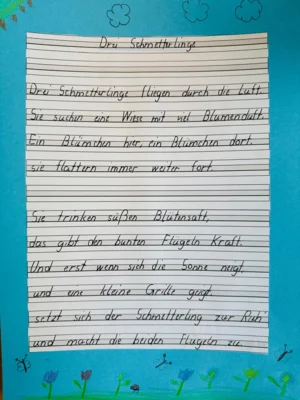 Drei Schmetterlinge
Drei Schmetterlinge fliegen durch die Luft.
Sie suchen eine Wiese mit viel Blumenduft.
Ein Blümchen hier, ein Blümchen dort,
sie flattern immer weiter fort.
Sie trinken süßen Blütensaft,
das gibt den bunten Flügeln Kraft.
Und erst wenn sich die Sonne neigt,
und eine kleine Grille geigt,
setzt sich der Schmetterling zur Ruh'
und macht die beiden Flügeln zu.